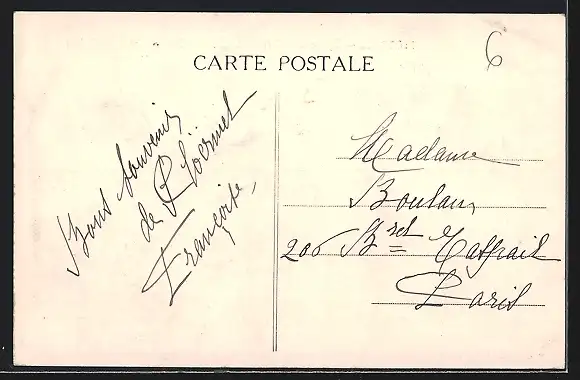 CARTE POSTALE
6
Bons Souvenirs
de P.
Françoise.
Madame
Boulan
206 Bd Raspail
Paris